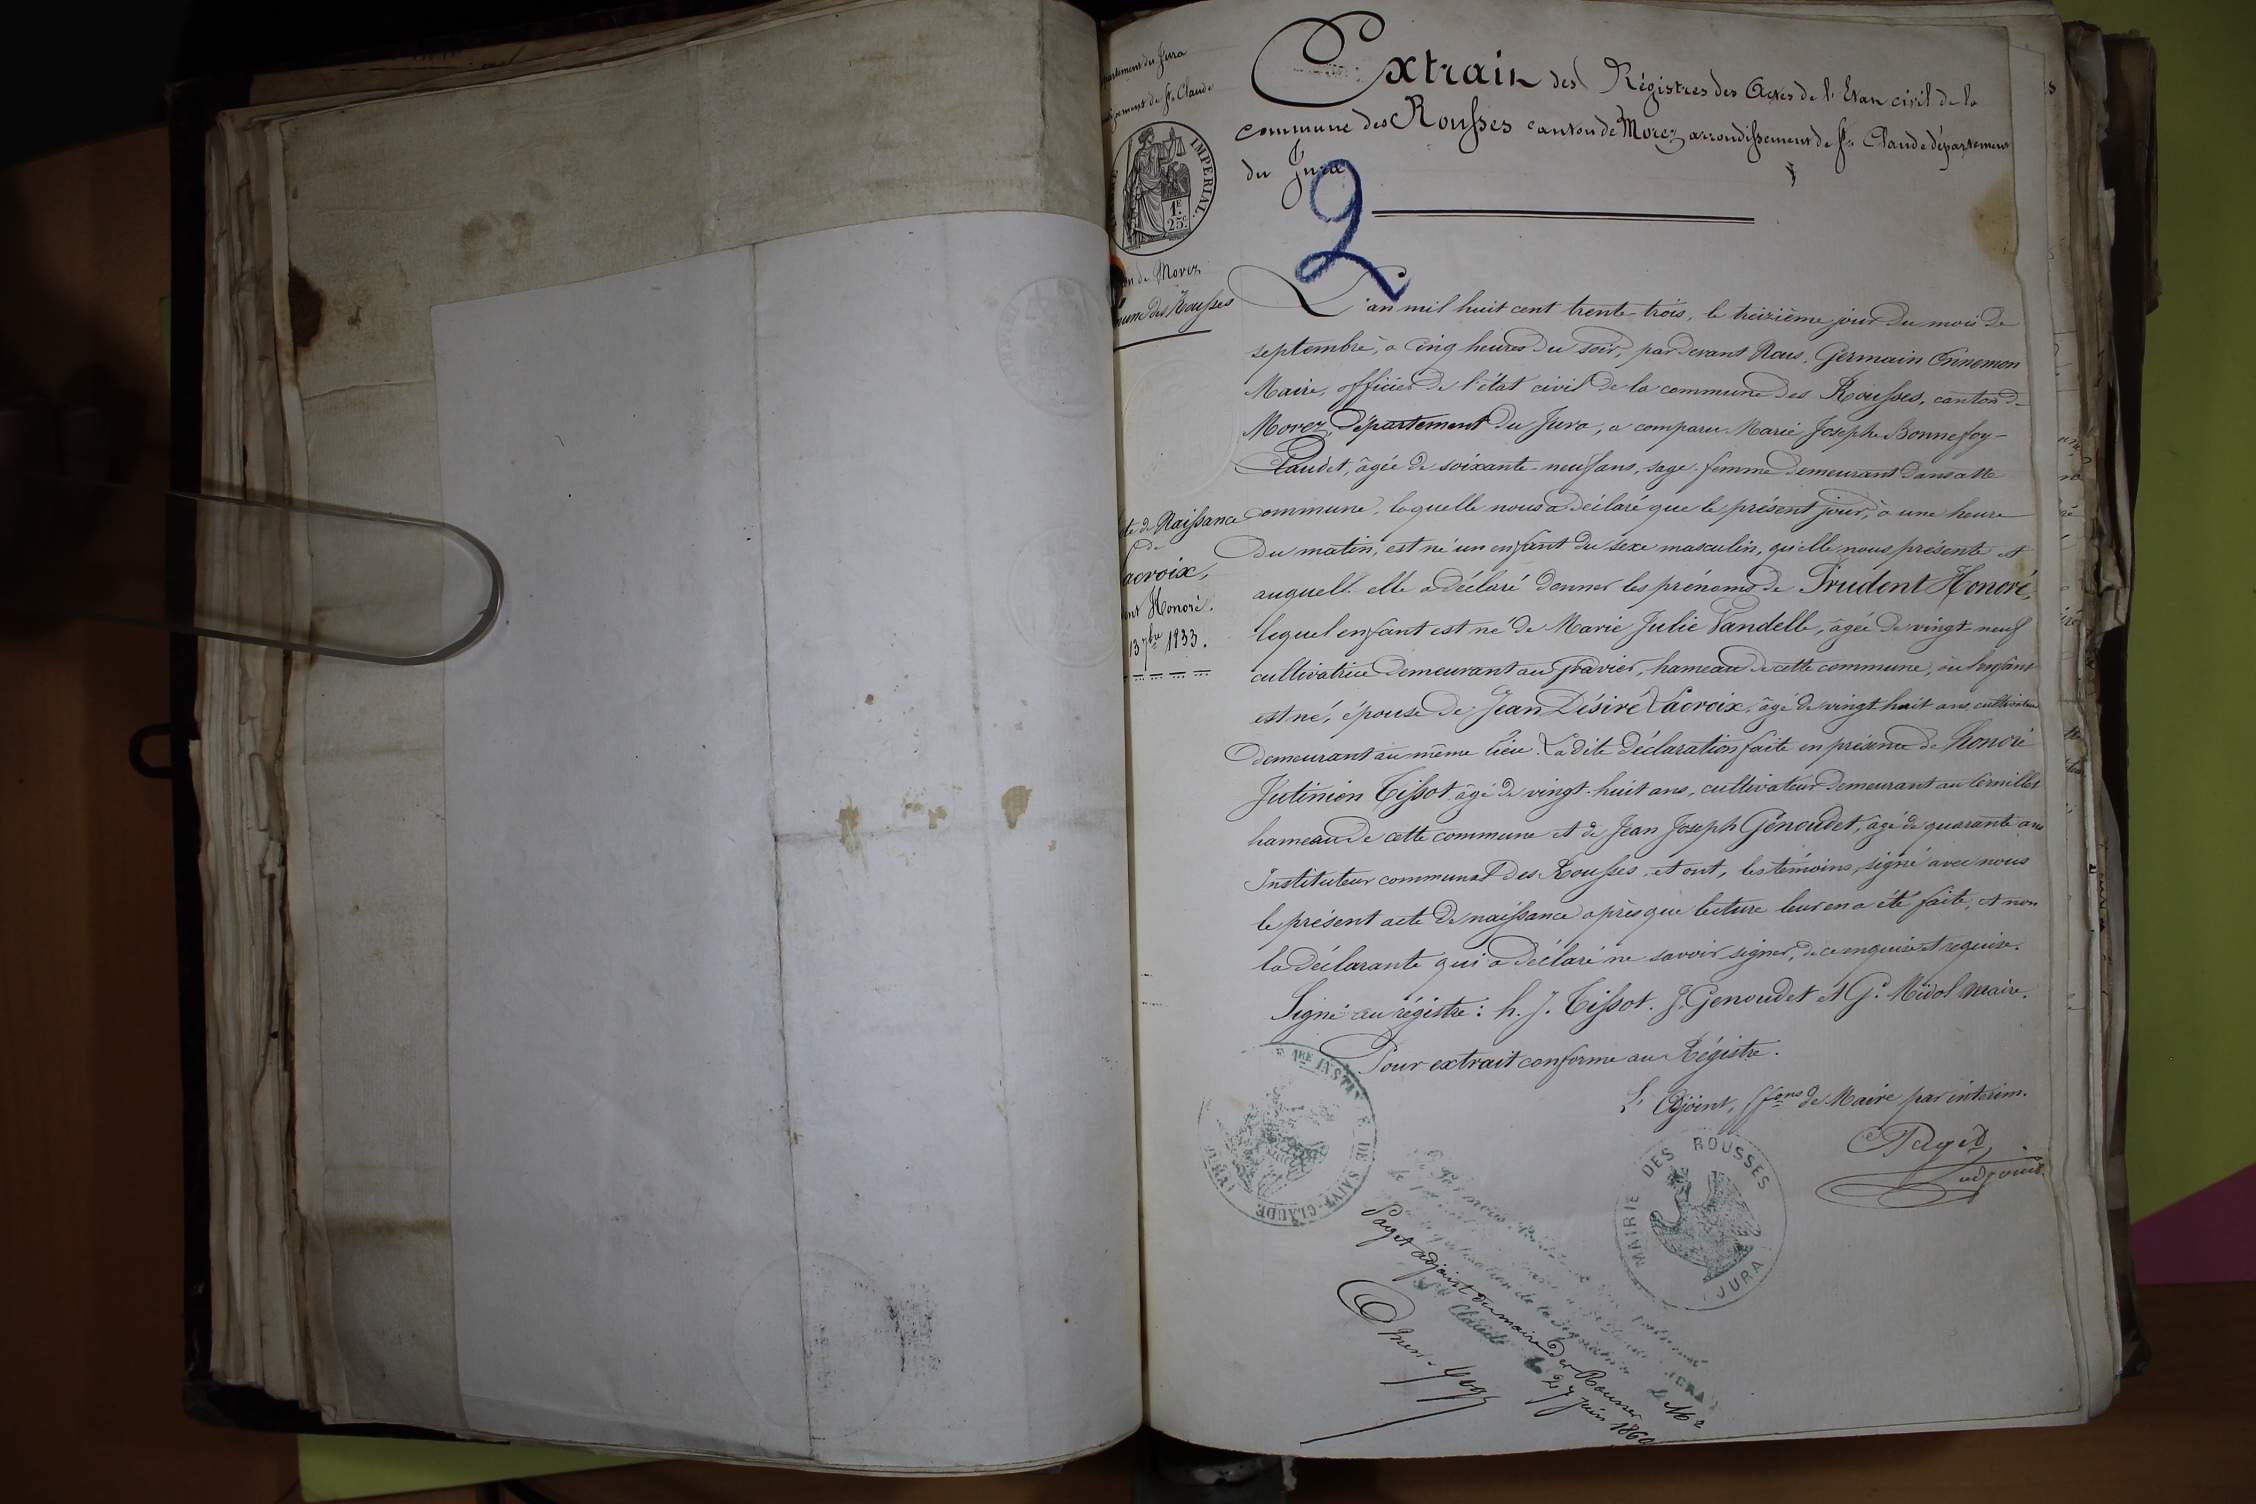 Extrait des Régistres des Actes de l'Etat civil de la
commune des Rousses canton de Morez arrondissement de St Claude département
du Jura
2
partement du Jura
de St Claude
IMPERIAL
1F
25c
on de Morez
mune des Rousses
te de Naissance
de
acroix,
ent Honoré.
13 7bre 1833.
L'an mil huit cent trente-trois, le treizième jour du mois de
septembre, à cinq heures du soir, par devant Nous, Germain
Maire, officier de l'état civil de la commune des Rousses, canton de
Morez, département du Jura, a comparu Marie Josephe Bonnefoy-
Claudet, âgée de soixante-neuf ans, sage-femme demeurant dans cette
commune, laquelle nous a déclaré que le présent jour, à une heure
du matin, est né un enfant du sexe masculin, qu'elle nous présente et
auquel elle a déclaré donner les prénoms de Prudent Honoré,
lequel enfant est né de Marie Julie Vandelle, âgée de vingt-neuf
cultivatrice demeurant au gravier, hameau de cette commune, où l'enfant
est né, épouse de Jean Désiré Lacroix, âgé de vingt huit ans, cultivateur
demeurant au même lieu. La dite déclaration faite en présence de honoré
Tissot âgé de vingt-huit ans, cultivateur demeurant au
hameau de cette commune et de Jean Joseph Genoudet, âgé de quarante ans
Instituteur communal des Rousses, et ont, les témoins, signé avec nous
le présent acte de naissance après que lecture leur en a été faite, et non
la déclarante qui a déclaré ne savoir signer, de ce enquise et requise.
Signé au régistre: h. J. Tissot. J. Genoudet et G. Midol Maire.
Pour extrait conforme au Régistre.
L'Adjoint, ffons de Maire par intérim.
Paget
adjoint
E 1RE INSTANCE DE SAINT-CLAUDE (JURA)
MAIRIE DES ROUSSES (JURA)
la législation de la signature de Mr
Paget adjoint du maire des Rousses
St Claude le 27 juin 1860